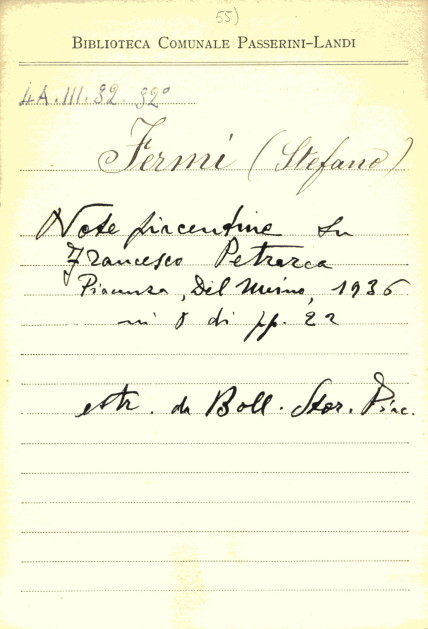 55)
BIBLIOTECA COMUNALE PASSERINI-LANDI
4A.III.32.32°
Fermi (Stefano)
Note piacentine su
Francesco Petrarca
Piacenza, Del Maino, 1936
in 8 di pp. 22
estr. da Boll. Stor. Piac.